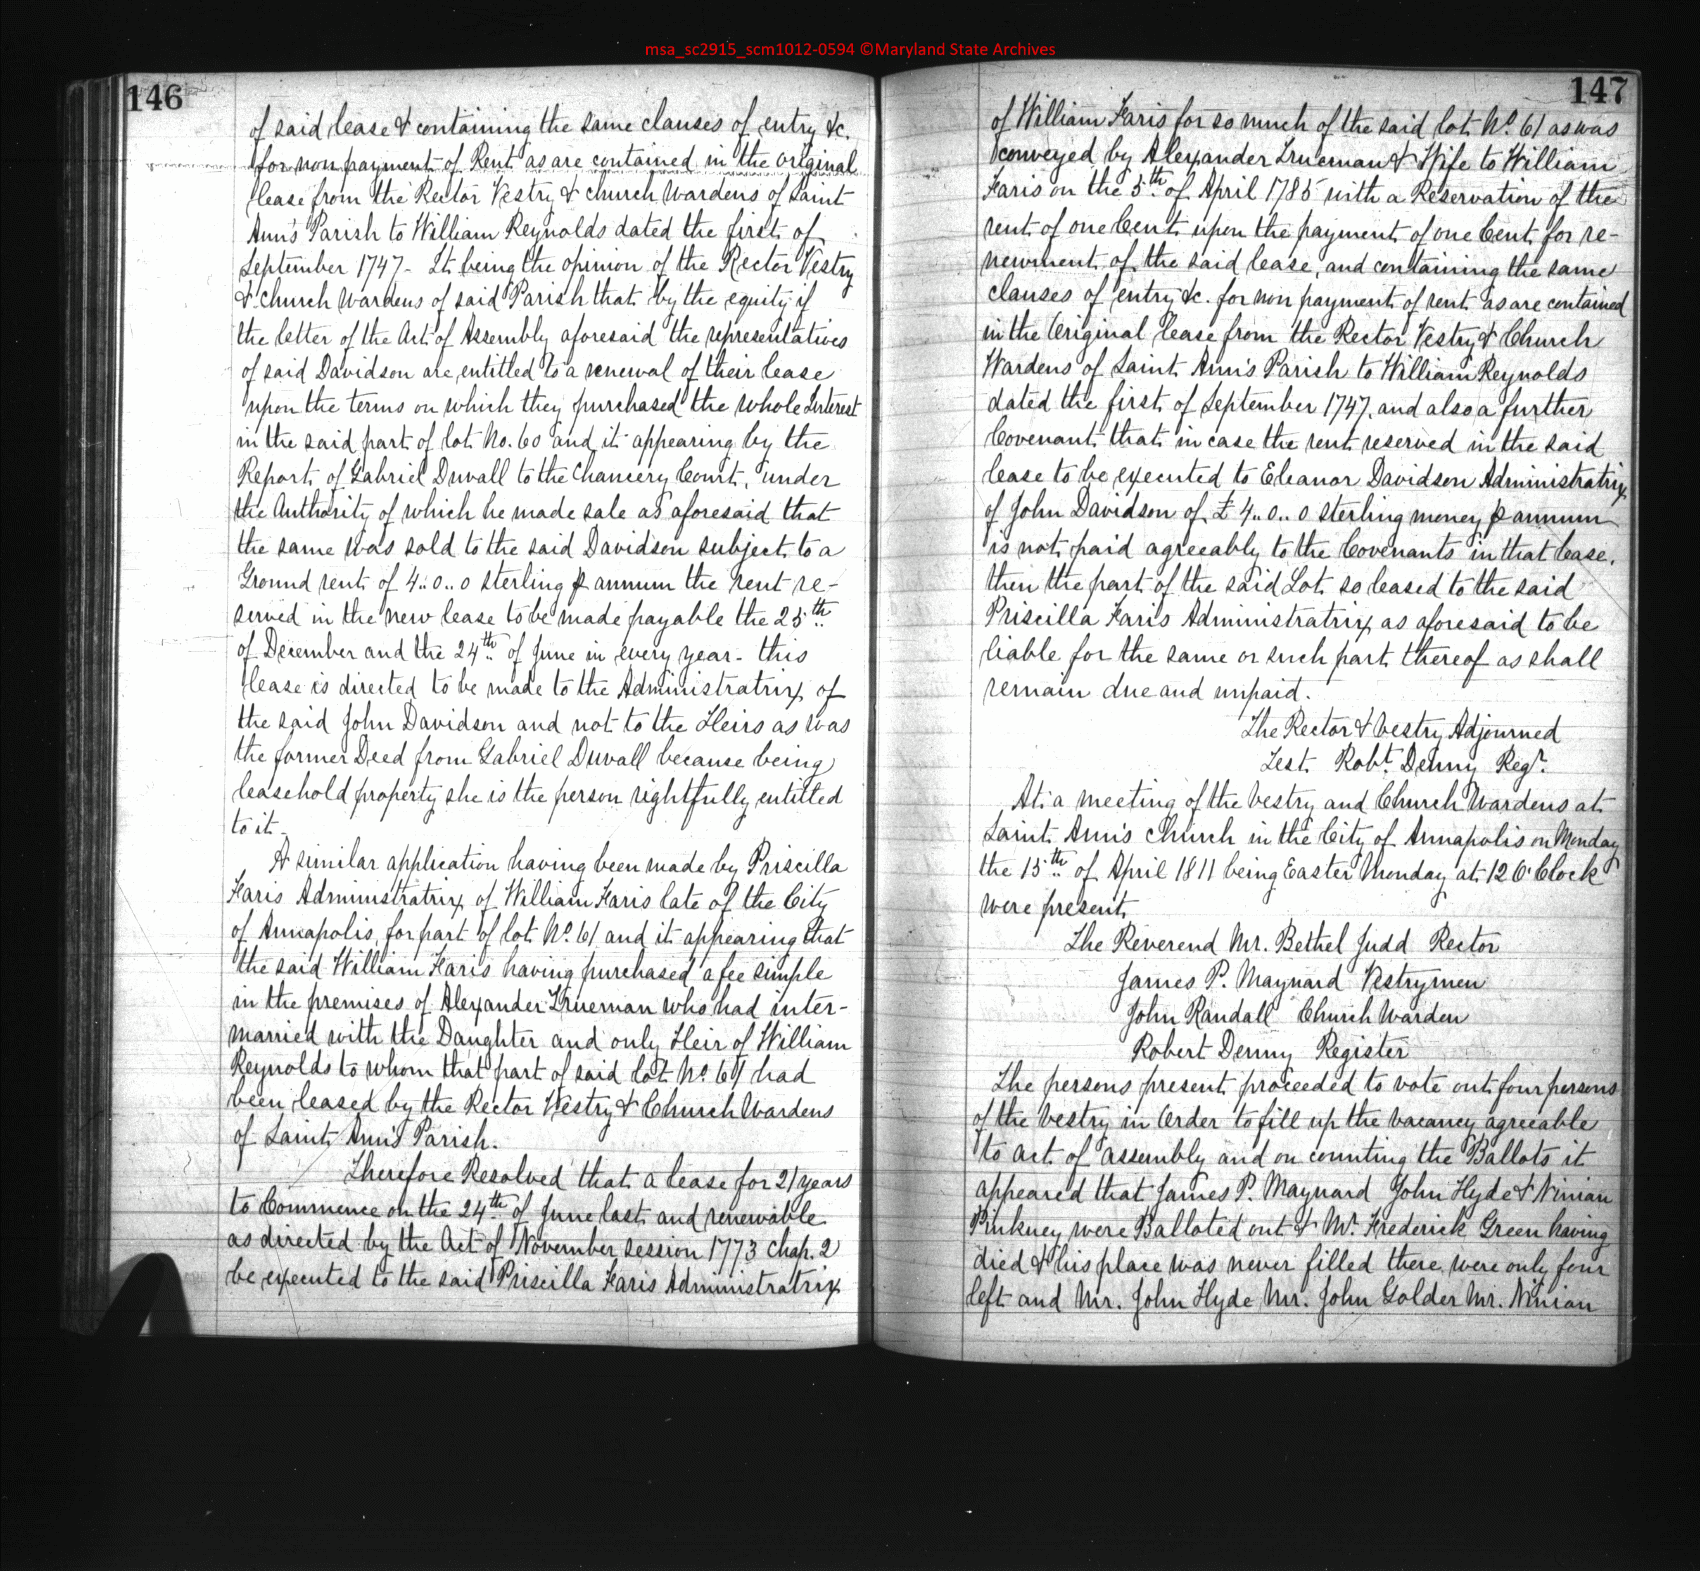 msa_sc2915_scm1012-0594 ©Maryland State Archives
146
of said lease & containing the same clauses of entry &c.
for non payment of Rent as are contained in the original
lease from the Rector Vestry & church Wardens of Saint
Ann's Parish to William Reynolds dated the first of
September 1747 - It being the opinion of the Rector Vestry
& church Wardens of said Parish that by the equity if
the letter of the Act of Assembly aforesaid the representatives
of said Davidson are entitled to a renewal of their lease
upon the terms on which they purchased the whole Interest
in the said part of lot No. 60 and it appearing by the
Report of Gabriel Duvall to the Chancery Court, under
the Authority of which he made sale as aforesaid that
the same was sold to the said Davidson subject to a
Ground rent of 4..0..0 sterling p annum the rent re-
served in the new lease to be made payable the 25th
of December and the 24th of June in every year - this
lease is directed to be made to the Administratrix of
the said John Davidson and not to the Heirs as was
the former Deed from Gabriel Duvall because being
leasehold property she is the person rightfully entitled
to it -
A similar application having been made by Priscilla
Faris Administratrix of William Faris late of the City
of Annapolis, for part of lot No. 61 and it appearing that
the said William Faris having purchased a fee simple
in the premises of Alexander Trueman who had inter-
married with the Daughter and only Heir of William
Reynolds to whom that part of said lot No. 61 had
been leased by the Rector Vestry & Church Wardens
of Saint Ann's Parish.
Therefore Resolved that a lease for 21 years
to Commence on the 24th of June last and renewable
as directed by the Act of November session 1773 chap. 2
be executed to the said Priscilla Faris Administratrix
147
of William Faris for so much of the said lot No. 61 as was
conveyed by Alexander Trueman & Wife to William
Faris on the 5th of April 1785 with a Reservation of the
rent of one Cent upon the payment of one Cent for re-
newment of the said lease and containing the same
clauses of entry &c. for non payment of rent as are contained
in the Original lease from the Rector Vestry & Church
Wardens of Saint Ann's Parish to William Reynolds
dated the first of September 1747, and also a further
Covenant that in case the rent reserved in the said
lease to be executed to Eleanor Davidson Administratrix
of John Davidson of £4..0..0 sterling money p annum
is not paid agreeably to the Covenants in that lease,
then the part of the said Lot so leased to the said
Priscilla Faris Administratrix as aforesaid to be
liable for the same or such part thereof as shall
remain due and unpaid.
The Rector & Vestry Adjourned
Test Robt. Denny Regr.
At a meeting of the Vestry and Church Wardens at
Saint Ann's Church in the City of Annapolis on Monday
the 15th of April 1811 being Easter Monday at 12 O'Clock
were present
The Reverend Mr. Bethel Judd Rector
James P. Maynard Vestrymen
John Randall Church Warden
Robert Denny Register
The persons present proceeded to vote out four persons
of the vestry in Order to fill up the vacancy agreeable
to act of assembly and on counting the Ballots it
appeared that James P. Maynard John Hyde & Ninian
Pinkney were Balloted out & Mr. Frederick Green having
died & his place was never filled there were only four
left and Mr. John Hyde Mr. John Golder Mr. Ninian